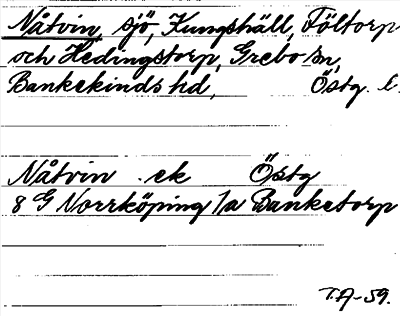 Nåtvin, sjö, Kungshäll, Föltorp
och Hedingstorp, Grebo sn,
Bankekinds hd, Östg. l.
Nåtvin ek Östg
8 G Norrköping 1a Banketorp
T.A-59.